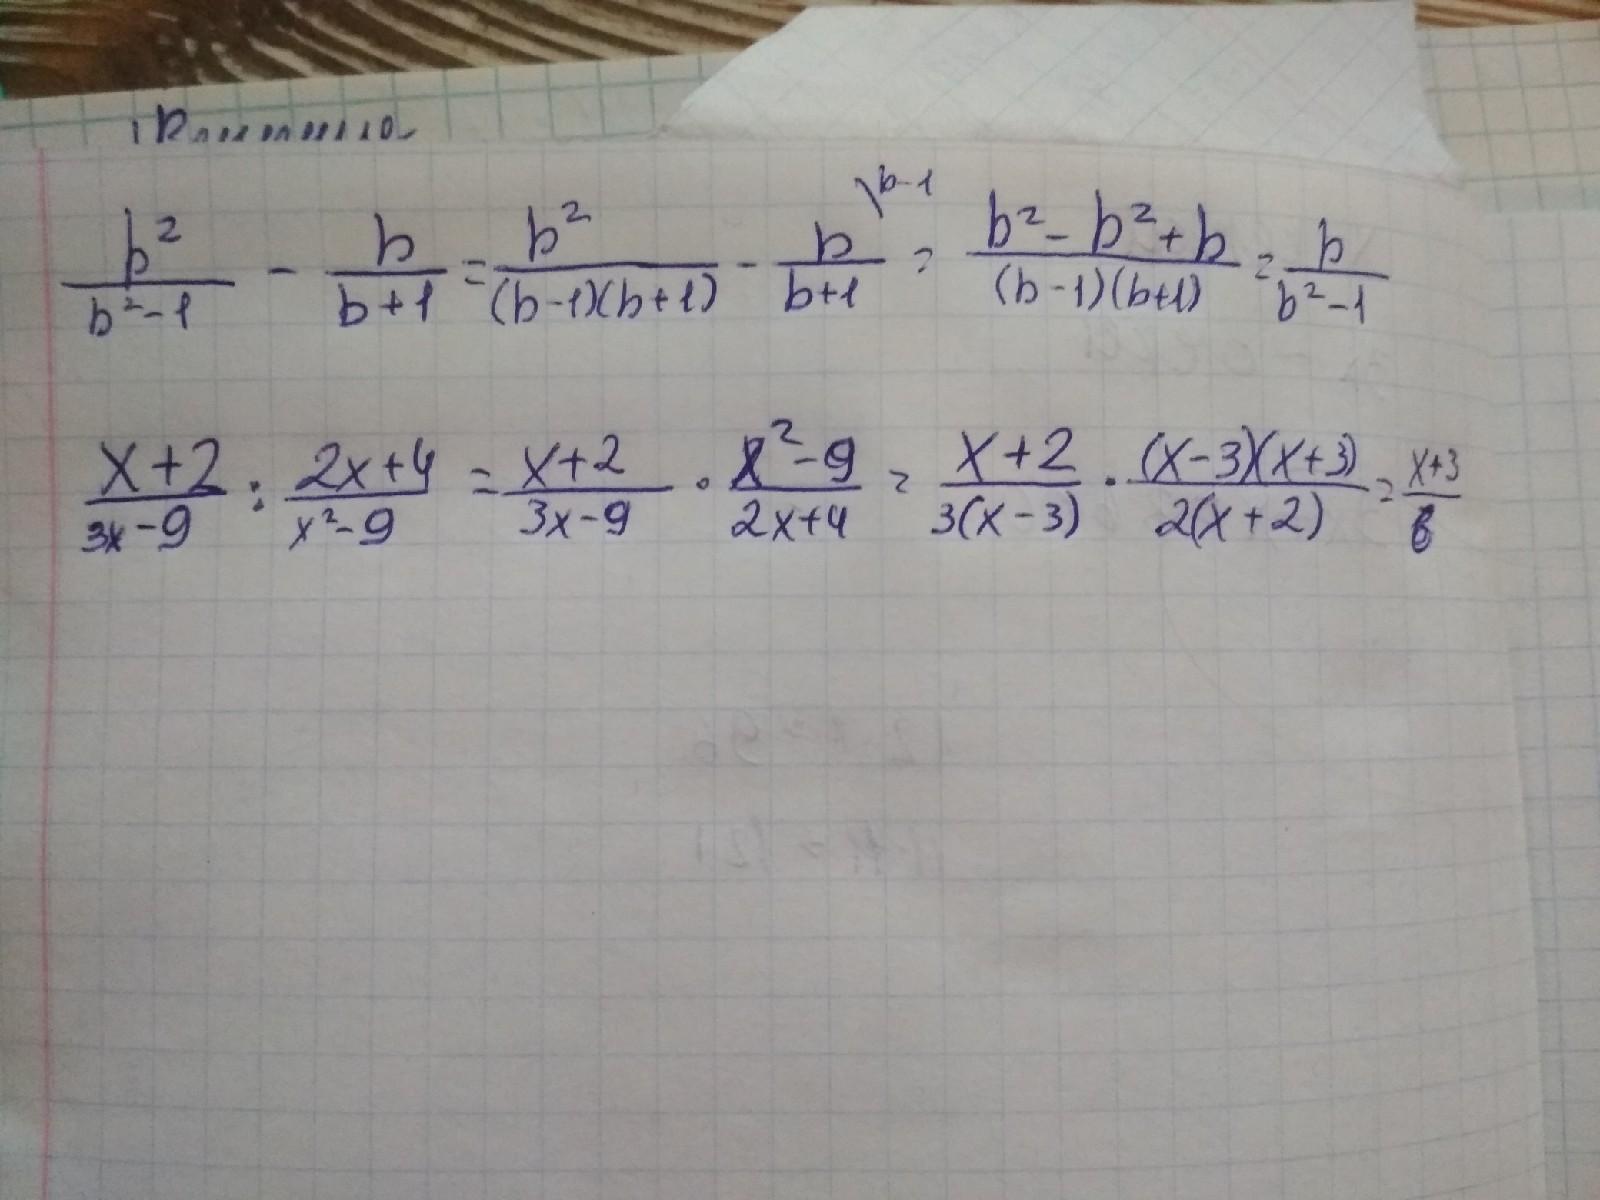 b²/(b²-1) - b/(b+1) = b²/((b-1)(b+1)) - b/(b+1) \b-1 = (b²-b²+b)/((b-1)(b+1)) = b/(b²-1)
(x+2)/(3x-9) : (2x+4)/(x²-9) = (x+2)/(3x-9) · (x²-9)/(2x+4) = (x+2)/(3(x-3)) · ((x-3)(x+3))/(2(x+2)) = (x+3)/6